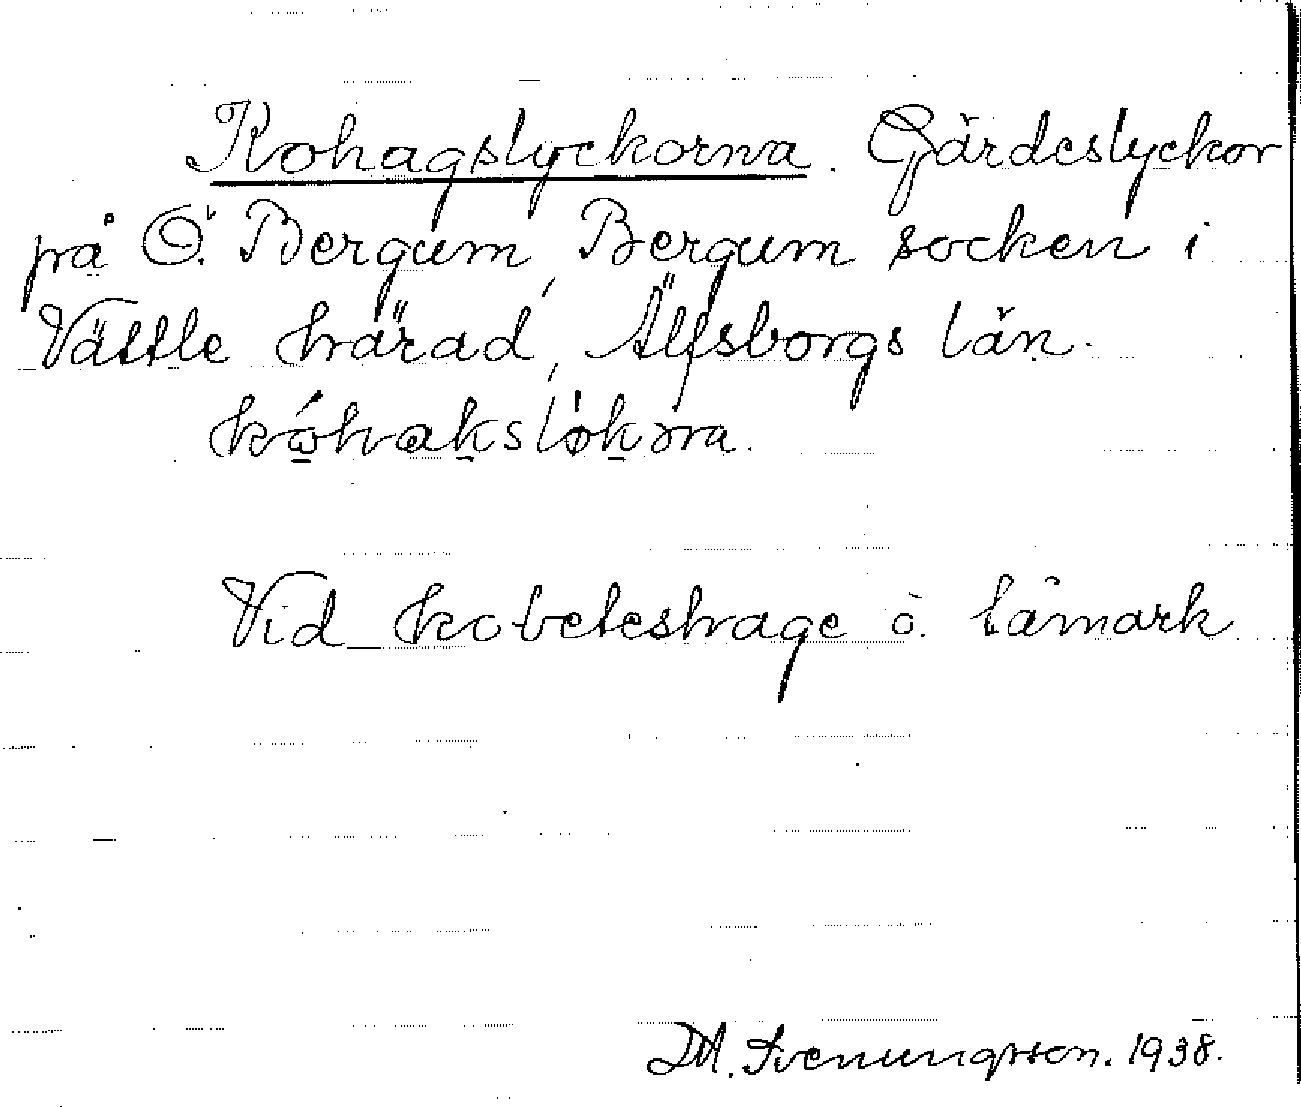 Kohagslyckorna. Gärdeslyckor
på Ö. Bergum, Bergum socken i
Vättle härad, Älfsborgs län.
kóhakslökɔra.
Vid kobeteshage ö. tåmark
M. Svenungsson. 1938.